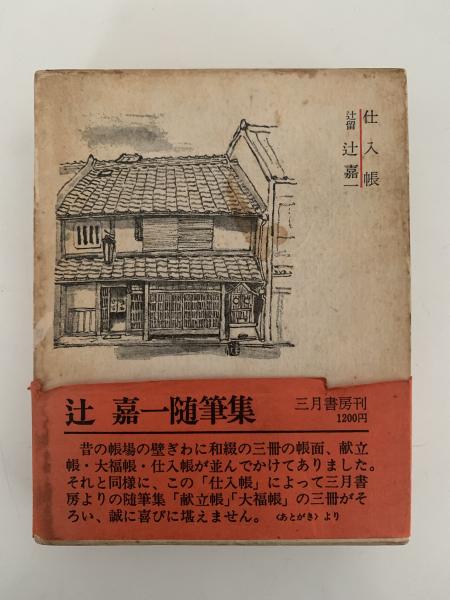 仕入帳
辻留 辻嘉一
辻 嘉一随筆集
三月書房刊
1200円
昔の帳場の壁ぎわに和綴の三冊の帳面、献立
帳・大福帳・仕入帳が並んでかけてありました。
それと同様に、この「仕入帳」によって三月書
房よりの随筆集「献立帳」「大福帳」の三冊がそ
ろい、誠に喜びに堪えません。〈あとがき〉より